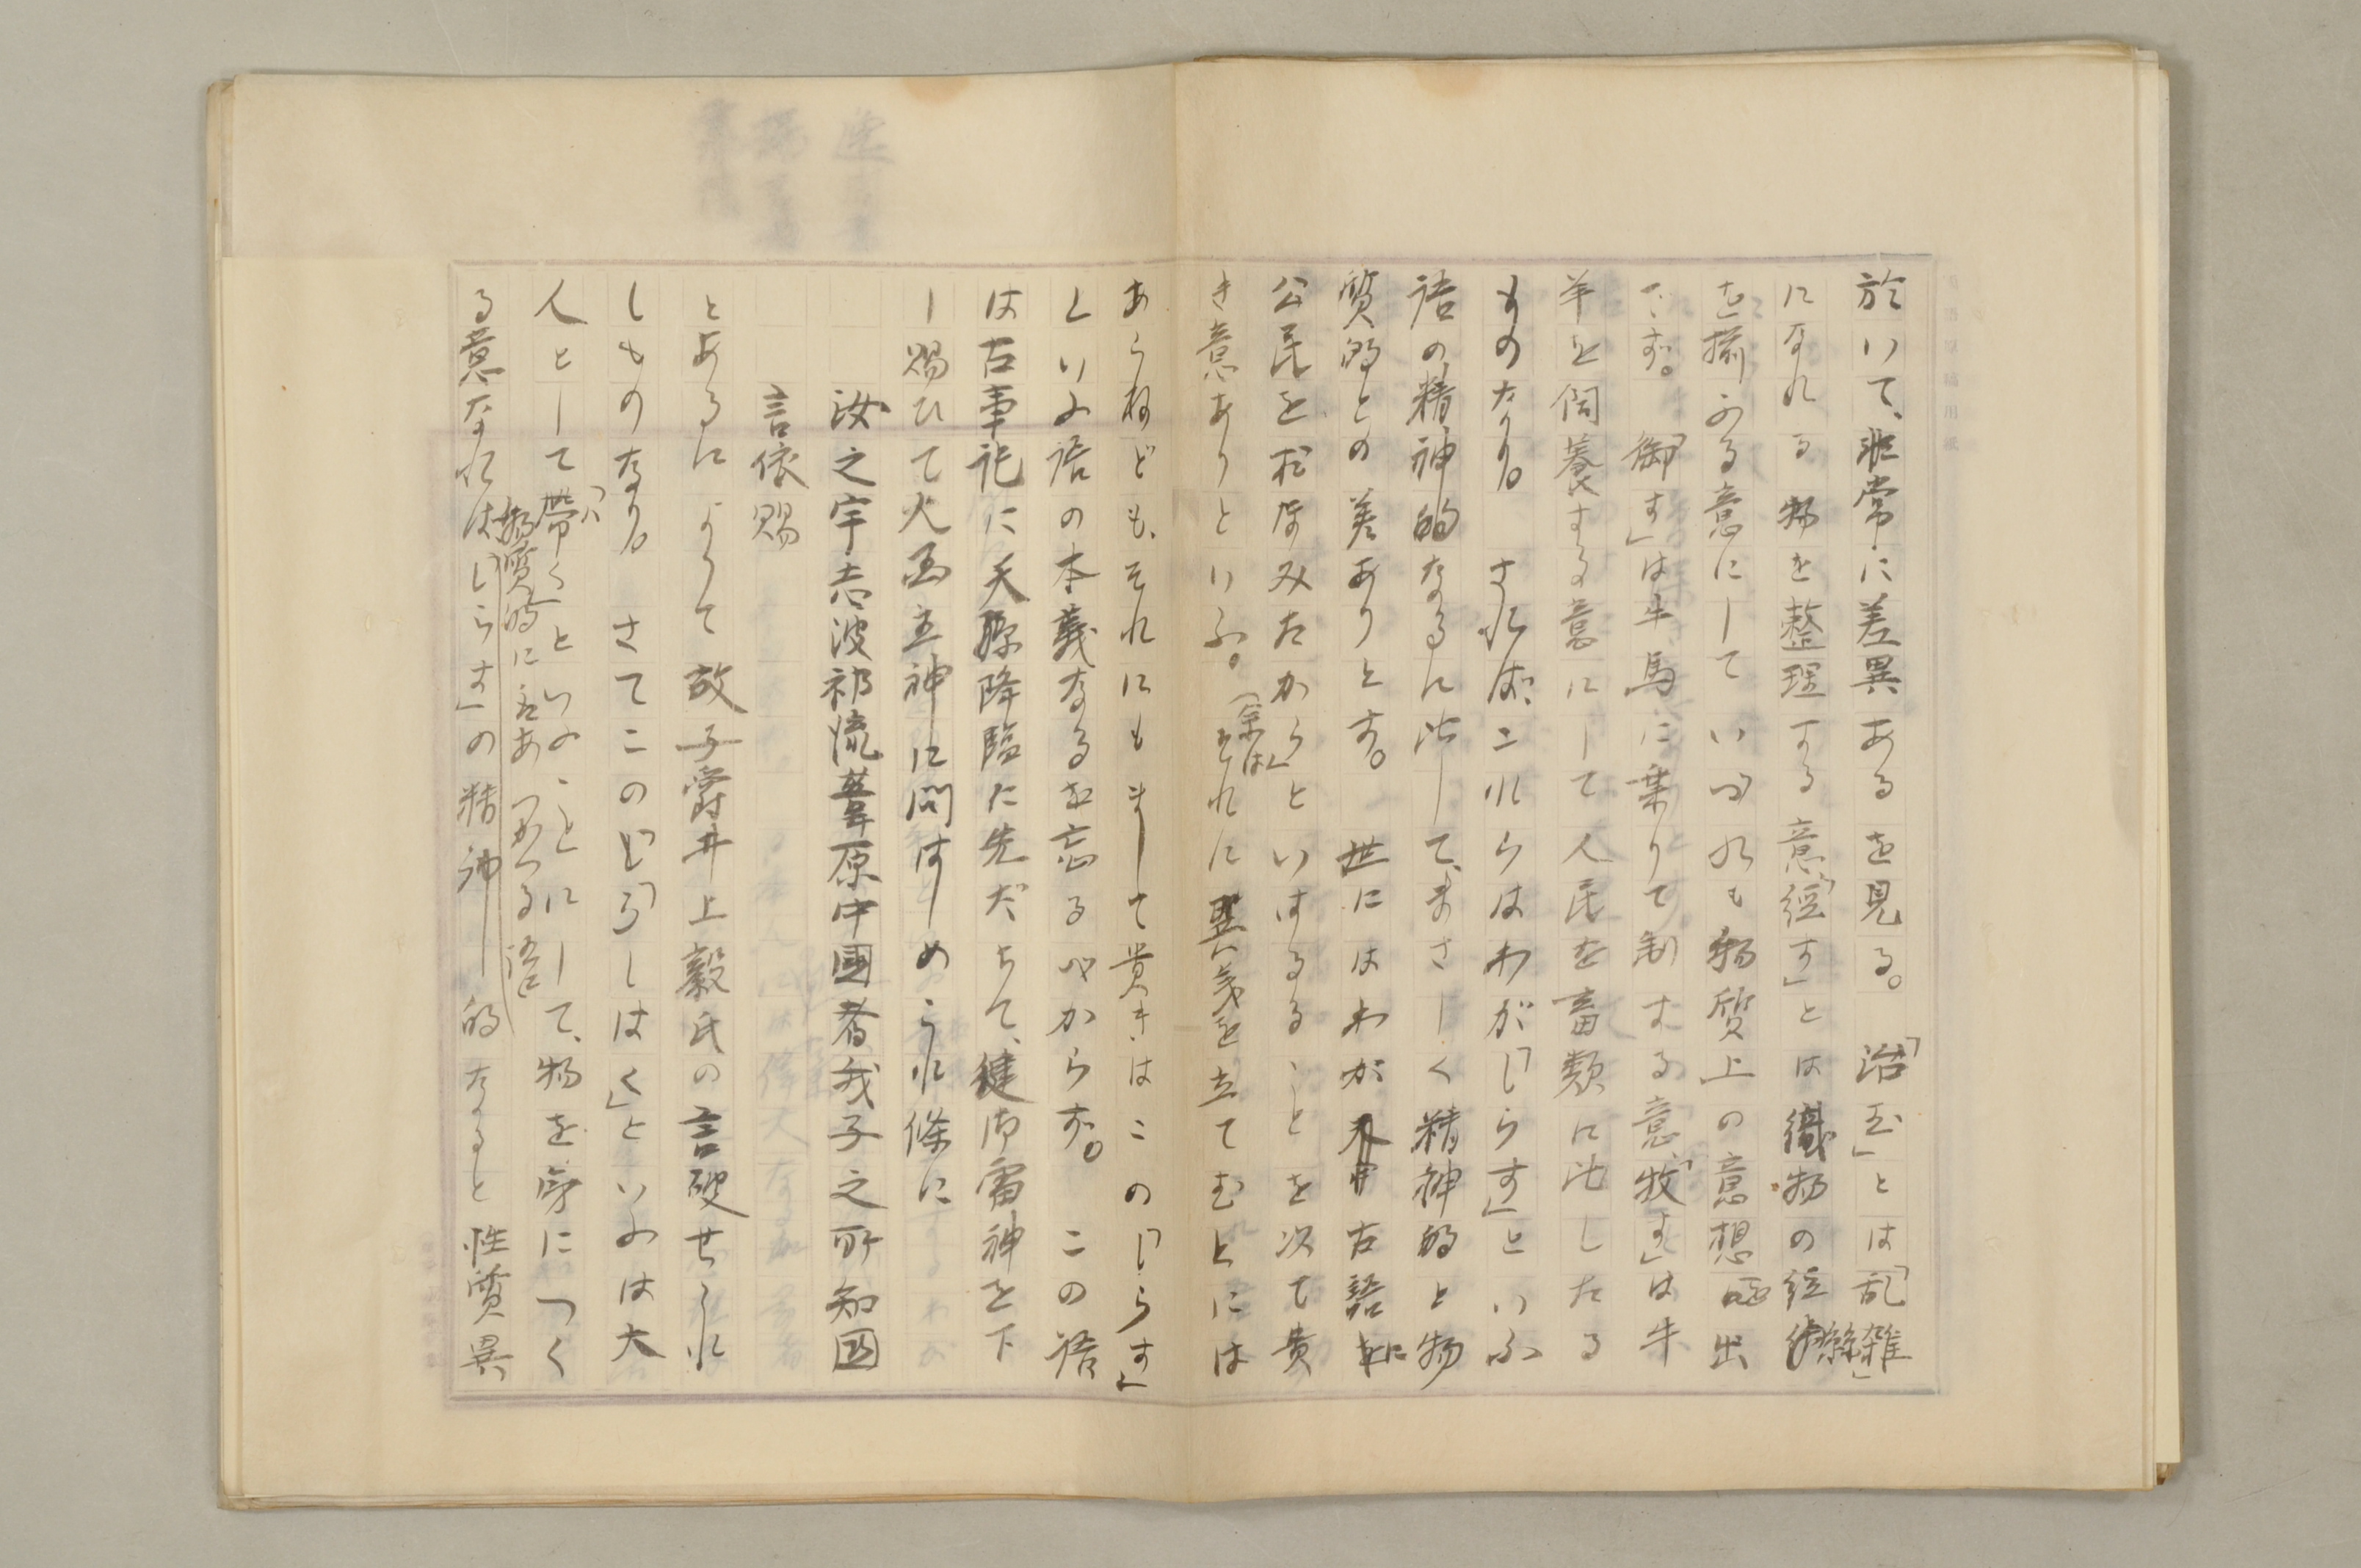 於いて、非常に差異あるを見る。「治国」とは「乱雑」
になれる物を整理する意、「經す」とは織物の經絲
を揃ふる意にしていづれも物質上の意想に出
でず。「御す」は牛馬に乗りて制する意、「牧す」は牛
羊を飼養する意にして人民を畜類に比したる
ものなり。されば、これらはわが「しらす」といふ
語の精神的なるに比して、まさしく精神的と物
質的との差ありとす。世にはわが古語に
公民をおほみたから」といはるることを以て貴
き意ありといふ。(余は)それに異義を立てむとには
あらねども、それにもまして貴きはこの「しらす」
といふ語の本義なるを忘るべからず。この語
は古事記に天孫降臨に先だちて、健御雷神を下
し賜ひて大国主神に問はしめられ條に
汝之宇志波祁流葦原中國者我子之所知国
言依賜
とあるによりて故子爵井上毅氏の言破せられ
しものなり。さてこの「うしはく」といふは大
人として「帯く」といふことにして、物を身につく
物質的に意あつかへる語
る意なれば「しらす」の精神的なると性質異